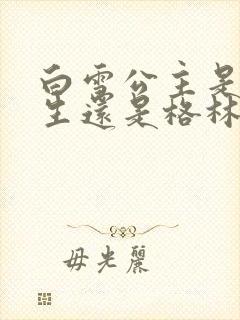 白雪公主是
生還是格林
毋光麗